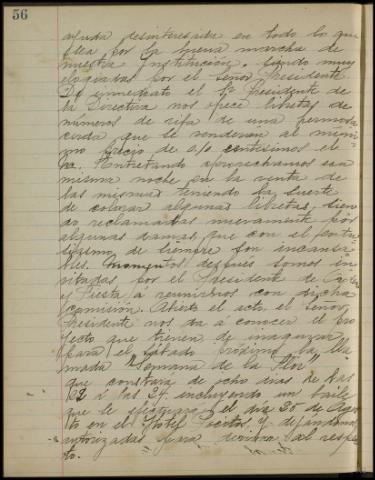 56
ayuda desinteresada en todo lo que
sea por la buena marcha de
nuestra Institución, siendo muy
elogiadas por el Señor Presidente.
De inmediato el Presidente de
la Directiva nos ofrece libretas de
números de rifa de una hermosa
que se venderán al míni-
mo precio de 0/0 centésimos el
No. Entretanto aprovechamos esa
misma noche en la venta de
las mismas teniendo la suerte
de colocar algunas libretas, sien
do reclamadas nuevamente por
algunas damas que con el
de siempre son incansa-
bles. Momentos después somos in
vitadas por el Presidente de Orden
y Fiesta a reunirnos con dicha
Comisión. Abierto el acto el señor
Presidente nos da a conocer el pro
yecto que tienen de inaugurar
para el sábado próximo la lla
mada "Semana de la Flor"
que constará de ocho días de las
22 a las 24 incluyendo un baile
que se efectuará el día 25 de Agos
to en el Hotel Pocitos y dejándonos
autorizadas para decidir al respec
to.